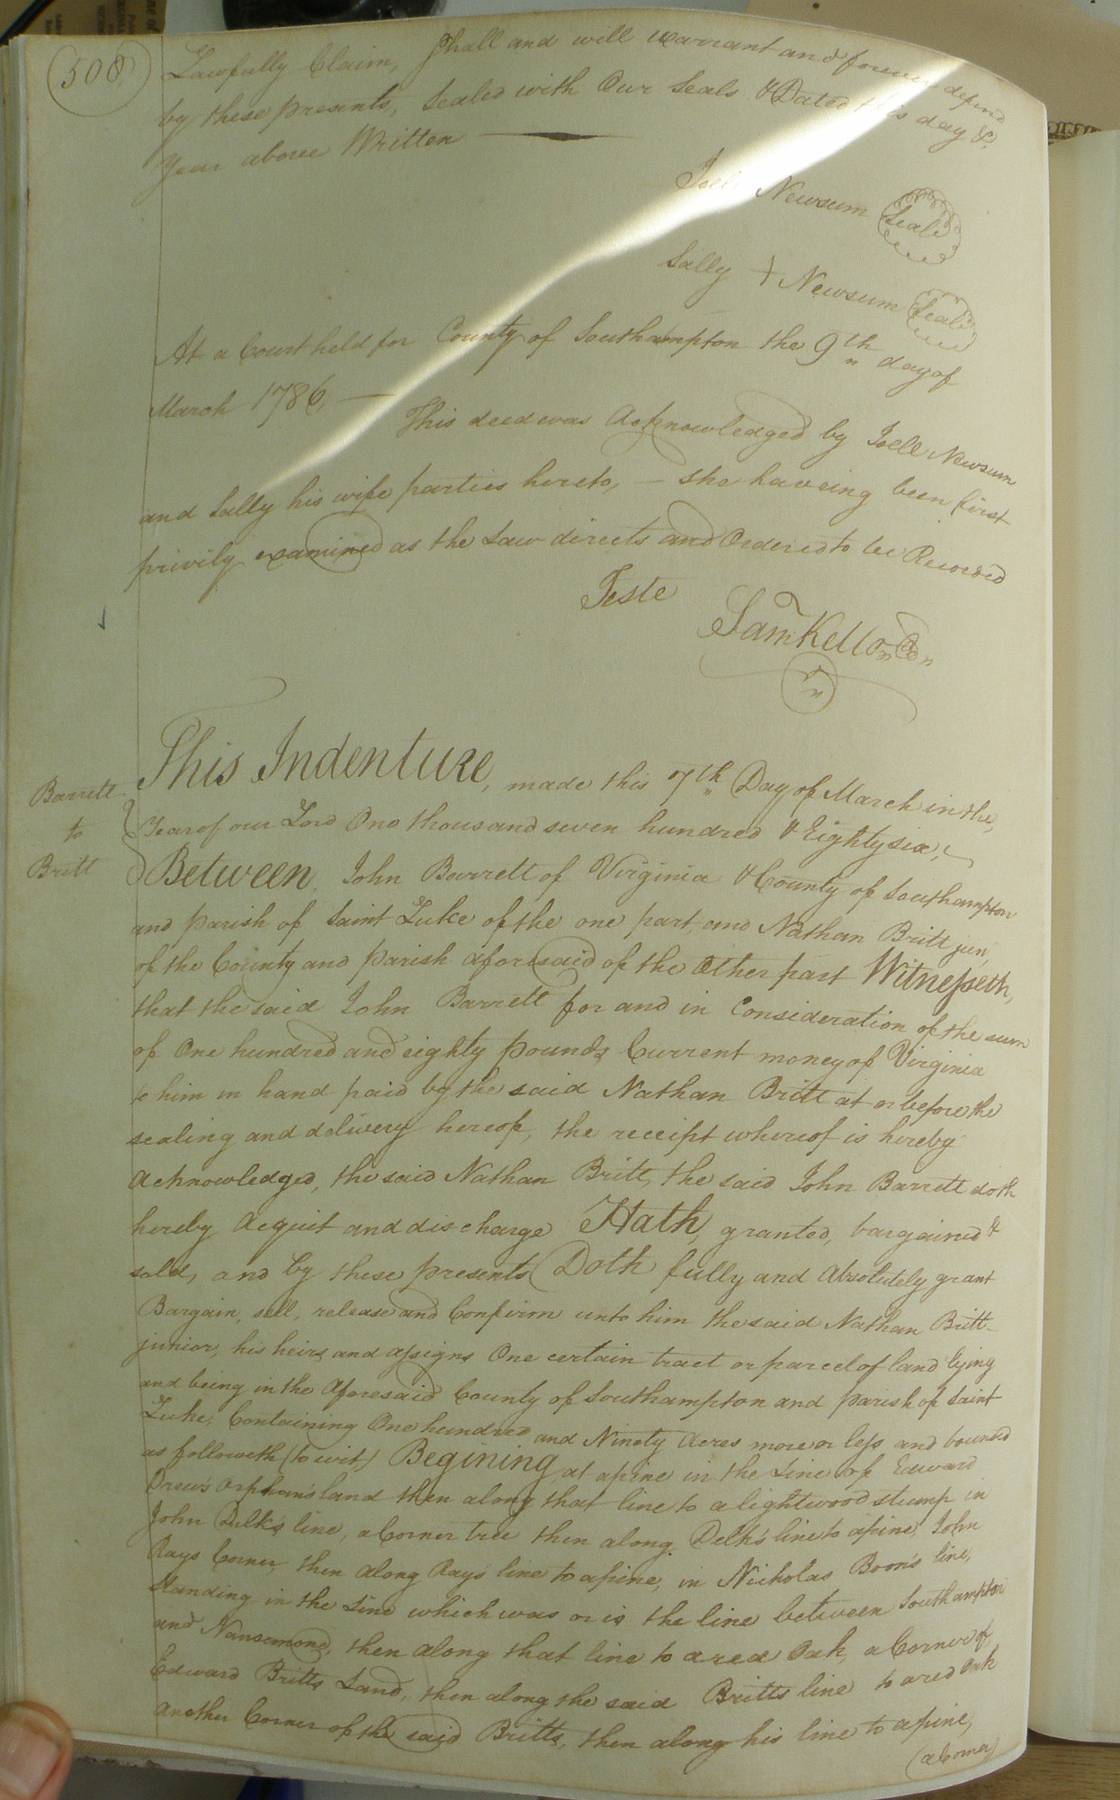 508
Lawfully Claim, Shall and will warrant and forever defend
by these presents, Sealed with Our Seals & Dated this day &
Year above Written
Joel Newsum Seal
Sally + Newsum Seal
At a Court held for County of Southampton the 9th day of
March 1786,
This deed was Acknowledged by Joell Newsum
and Sally his wife parties hereto, — she haveing been first
privily examined as the Law directs and Ordered to be Recorded
Teste
Sam Kello
This Indenture, made this 7th Day of March in the,
Barrett
to
Britt
Year of our Lord One thousand seven hundred & Eighty six,
Between, John Barrett of Virginia & County of Southampton
and parish of Saint Luke of the one part, and Nathan Britt jun,
of the County and parish aforesaid of the Other part Witnesseth,
that the said John Barrett for and in Consideration of the sum
of One hundred and eighty pounds Current money of Virginia
to him in hand paid by the said Nathan Britt at or before the
sealing and delivery hereof, the receipt whereof is hereby
Acknowledged, the said Nathan Britt, the said John Barrett doth
hereby Acquit and discharge Hath, granted, bargained &
sold, and by these presents Doth fully and Absolutely grant
Bargain, sell, release and Confirm unto him the said Nathan Britt
junior, his heirs and assigns One certain tract or parcel of land lying
and being in the Aforesaid County of Southampton and parish of Saint
Luke, Containing One hundred and Ninety Acres more or less and bound
as followeth (to wit) Begining at a pine in the Line of Edward
Drew's Orphan's land then along that line to a lightwood stump in
John Delk's line, a Corner tree then along Delk's line to a pine, John
Rays Corner, then along Rays line to a pine, in Nicholas Boon's line,
Standing in the Line which was or is the line between Southampton
and Nansemond, then along that line to a red Oak, a Corner of
Edward Britts Land, then along the said Britts line to a red Oak
another Corner of the said Britts, then along his line to a pine,
(a Corner)